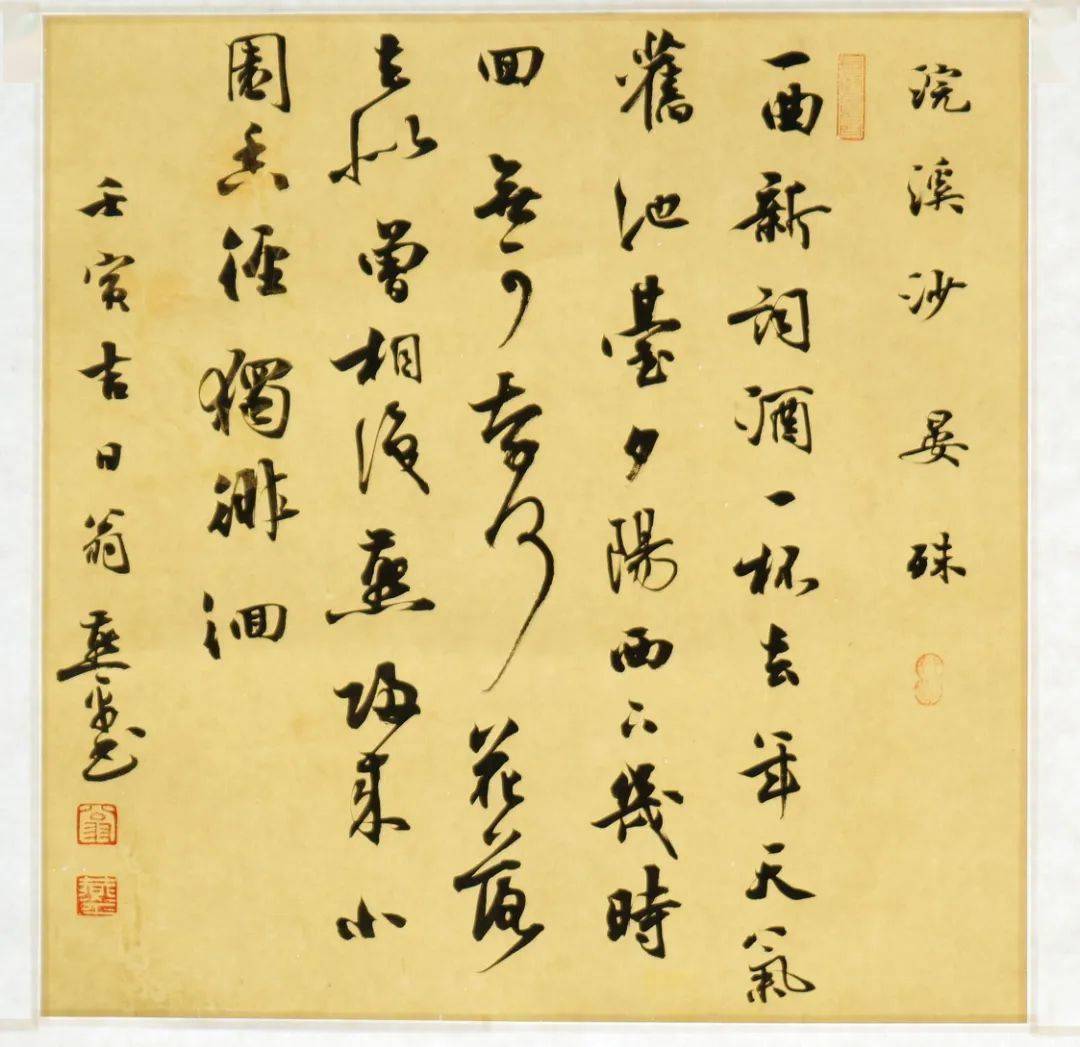 浣溪沙 晏殊
一曲新詞酒一杯去年天氣
舊池臺夕陽西下幾時
回無可奈何花落
去似曾相識燕歸來小
園香徑獨徘徊
壬寅吉日翁燕書